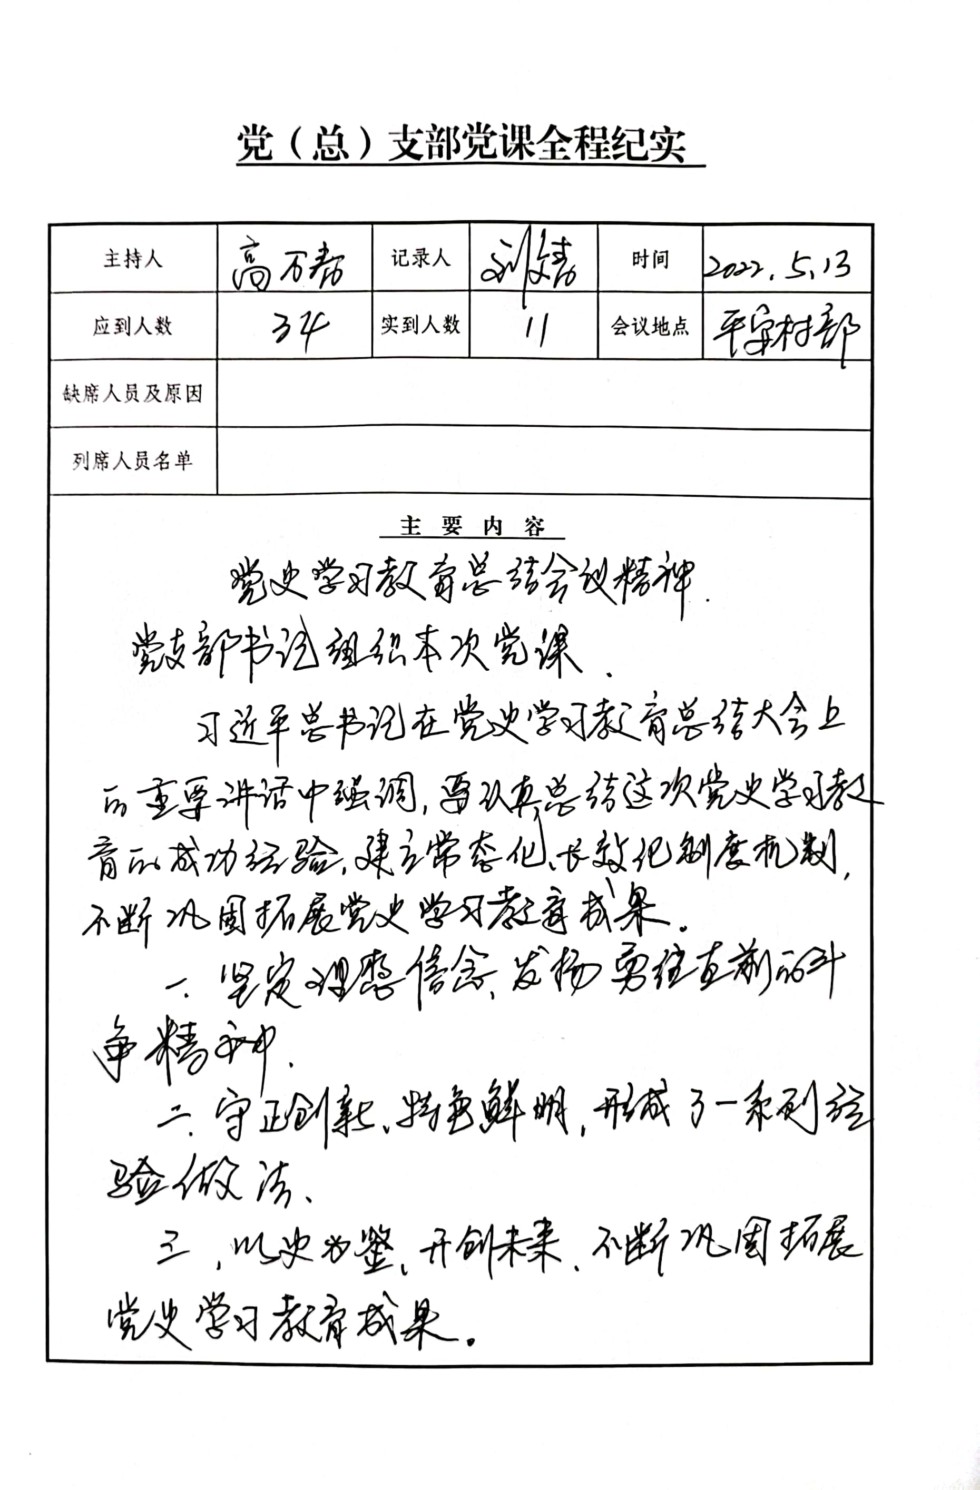 党（总）支部党课全程纪实
主持人 高万寿 记录人 刘婧 时间 2022.5.13
应到人数 34 实到人数 11 会议地点 平安村部
缺席人员及原因
列席人员名单
主要内容
党史学习教育总结会议精神.
党支部书记组织本次党课、
习近平总书记在党史学习教育总结大会上
的重要讲话中强调,要认真总结这次党史学习教
育的成功经验,建立常态化、长效化制度机制,
不断巩固拓展党史学习教育成果。
一、坚定理想信念、发扬勇往直前的斗
争精神.
二、守正创新、特色鲜明,形成了一系列经
验做法、
三,以史为鉴、开创未来、不断巩固拓展
党史学习教育成果。